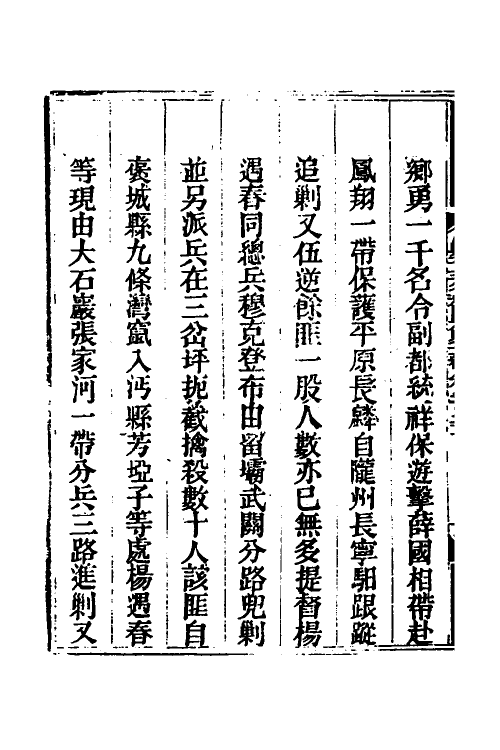 鄉勇一千名令副都統祥保遊擊薛國相帶赴
鳳翔一帶保護平原長麟自隴州長寧馹跟蹤
追剿又伍逆餘匪一股人數亦已無多提督楊
遇春同總兵穆克登布由留壩武關分路兜剿
並另派兵在三岔坪扼截擒殺數十人該匪自
褒城縣九條灣竄入沔縣芳埡子等處楊遇春
等現由大石巖張家河一帶分兵三路進剿又